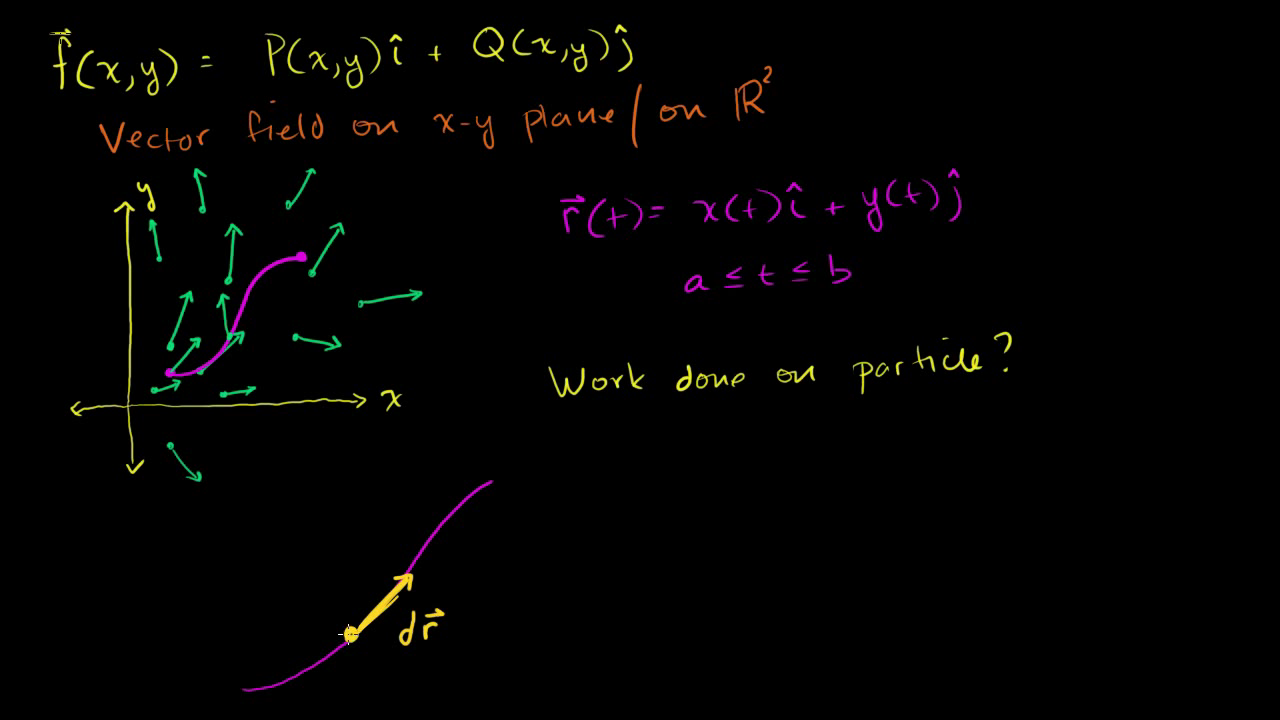 f⃗(x,y) = P(x,y)î + Q(x,y)ĵ
Vector field on x-y plane/on ℝ²
y
r⃗(t)= x(t)î + y(t)ĵ
a ≤ t ≤ b
Work done on particle?
x
dr⃗